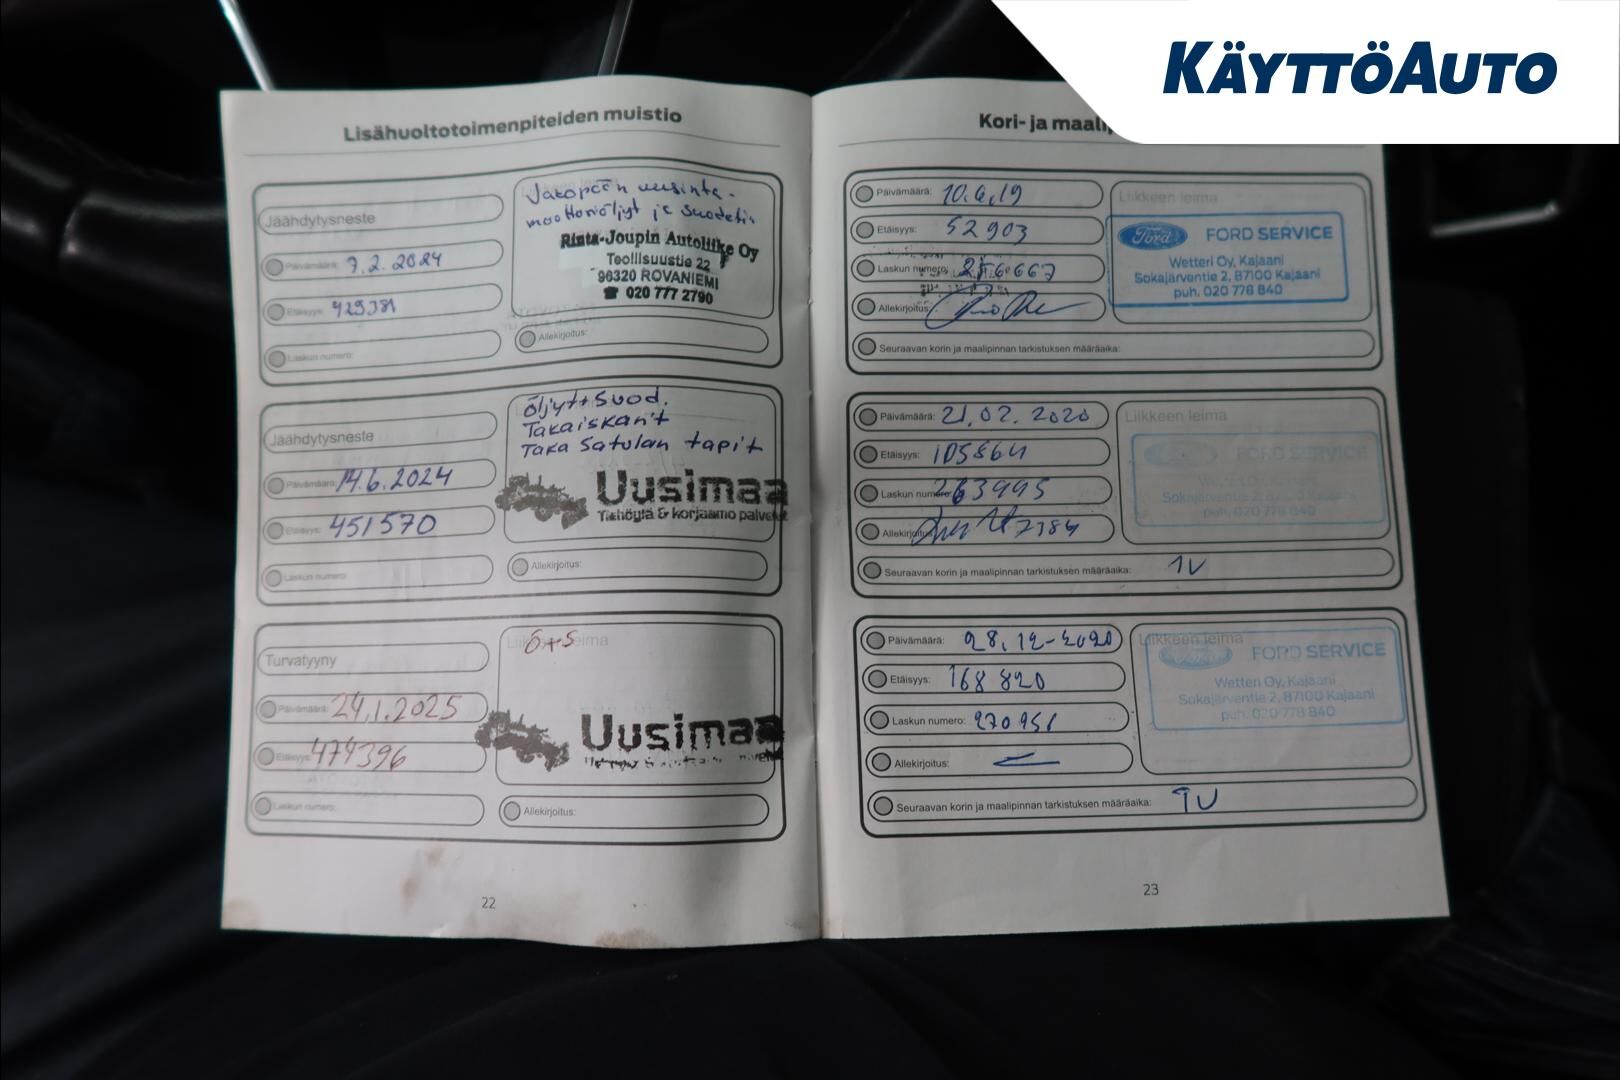 KÄYTTÖAUTO
Lisähuoltotoimenpiteiden muistio
Jäähdytysneste
Päivämäärä: 7.2.2024
Etäisyys: 429381
Laskun numero:
Jakopään uusinta -
moottoriöljyt ja suodatin
Rinta-Joupin Autoliike Oy
Teollisuustie 22
96320 ROVANIEMI
☎ 020 777 2790
Allekirjoitus:
Jäähdytysneste
Päivämäärä: 14.6.2024
Etäisyys: 451570
Laskun numero:
öljyt+suod.
Takaiskarit
Taka satulan tapit
Uusimaa
Tiehöylä & korjaamo palvelut
Allekirjoitus:
Turvatyyny
Päivämäärä: 24.1.2025
Etäisyys: 474396
Laskun numero:
Liikkeen leima
ö+s
Uusimaa
Allekirjoitus:
22
Kori- ja
Päivämäärä: 10.4.19
Etäisyys: 52903
Laskun numero: 256667
Allekirjoitus:
Liikkeen leima
Ford FORD SERVICE
Wetteri Oy, Kajaani
Sokajärventie 2, 87100 Kajaani
puh. 020 778 840
Seuraavan korin ja maalipinnan tarkistuksen määräaika:
Päivämäärä: 21.02.2020
Etäisyys: 105864
Laskun numero: 263995
Allekirjoitus: 7184
Liikkeen leima
FORD SERVICE
Wetteri Oy, Kajaani
Sokajärventie 2, 87100 Kajaani
puh. 020 778 840
Seuraavan korin ja maalipinnan tarkistuksen määräaika: 1V
Päivämäärä: 28.12-2020
Etäisyys: 168 820
Laskun numero: 270951
Allekirjoitus:
Liikkeen leima
FORD SERVICE
Wetteri Oy, Kajaani
Sokajärventie 2, 87100 Kajaani
puh. 020 778 840
Seuraavan korin ja maalipinnan tarkistuksen määräaika: 1V
23